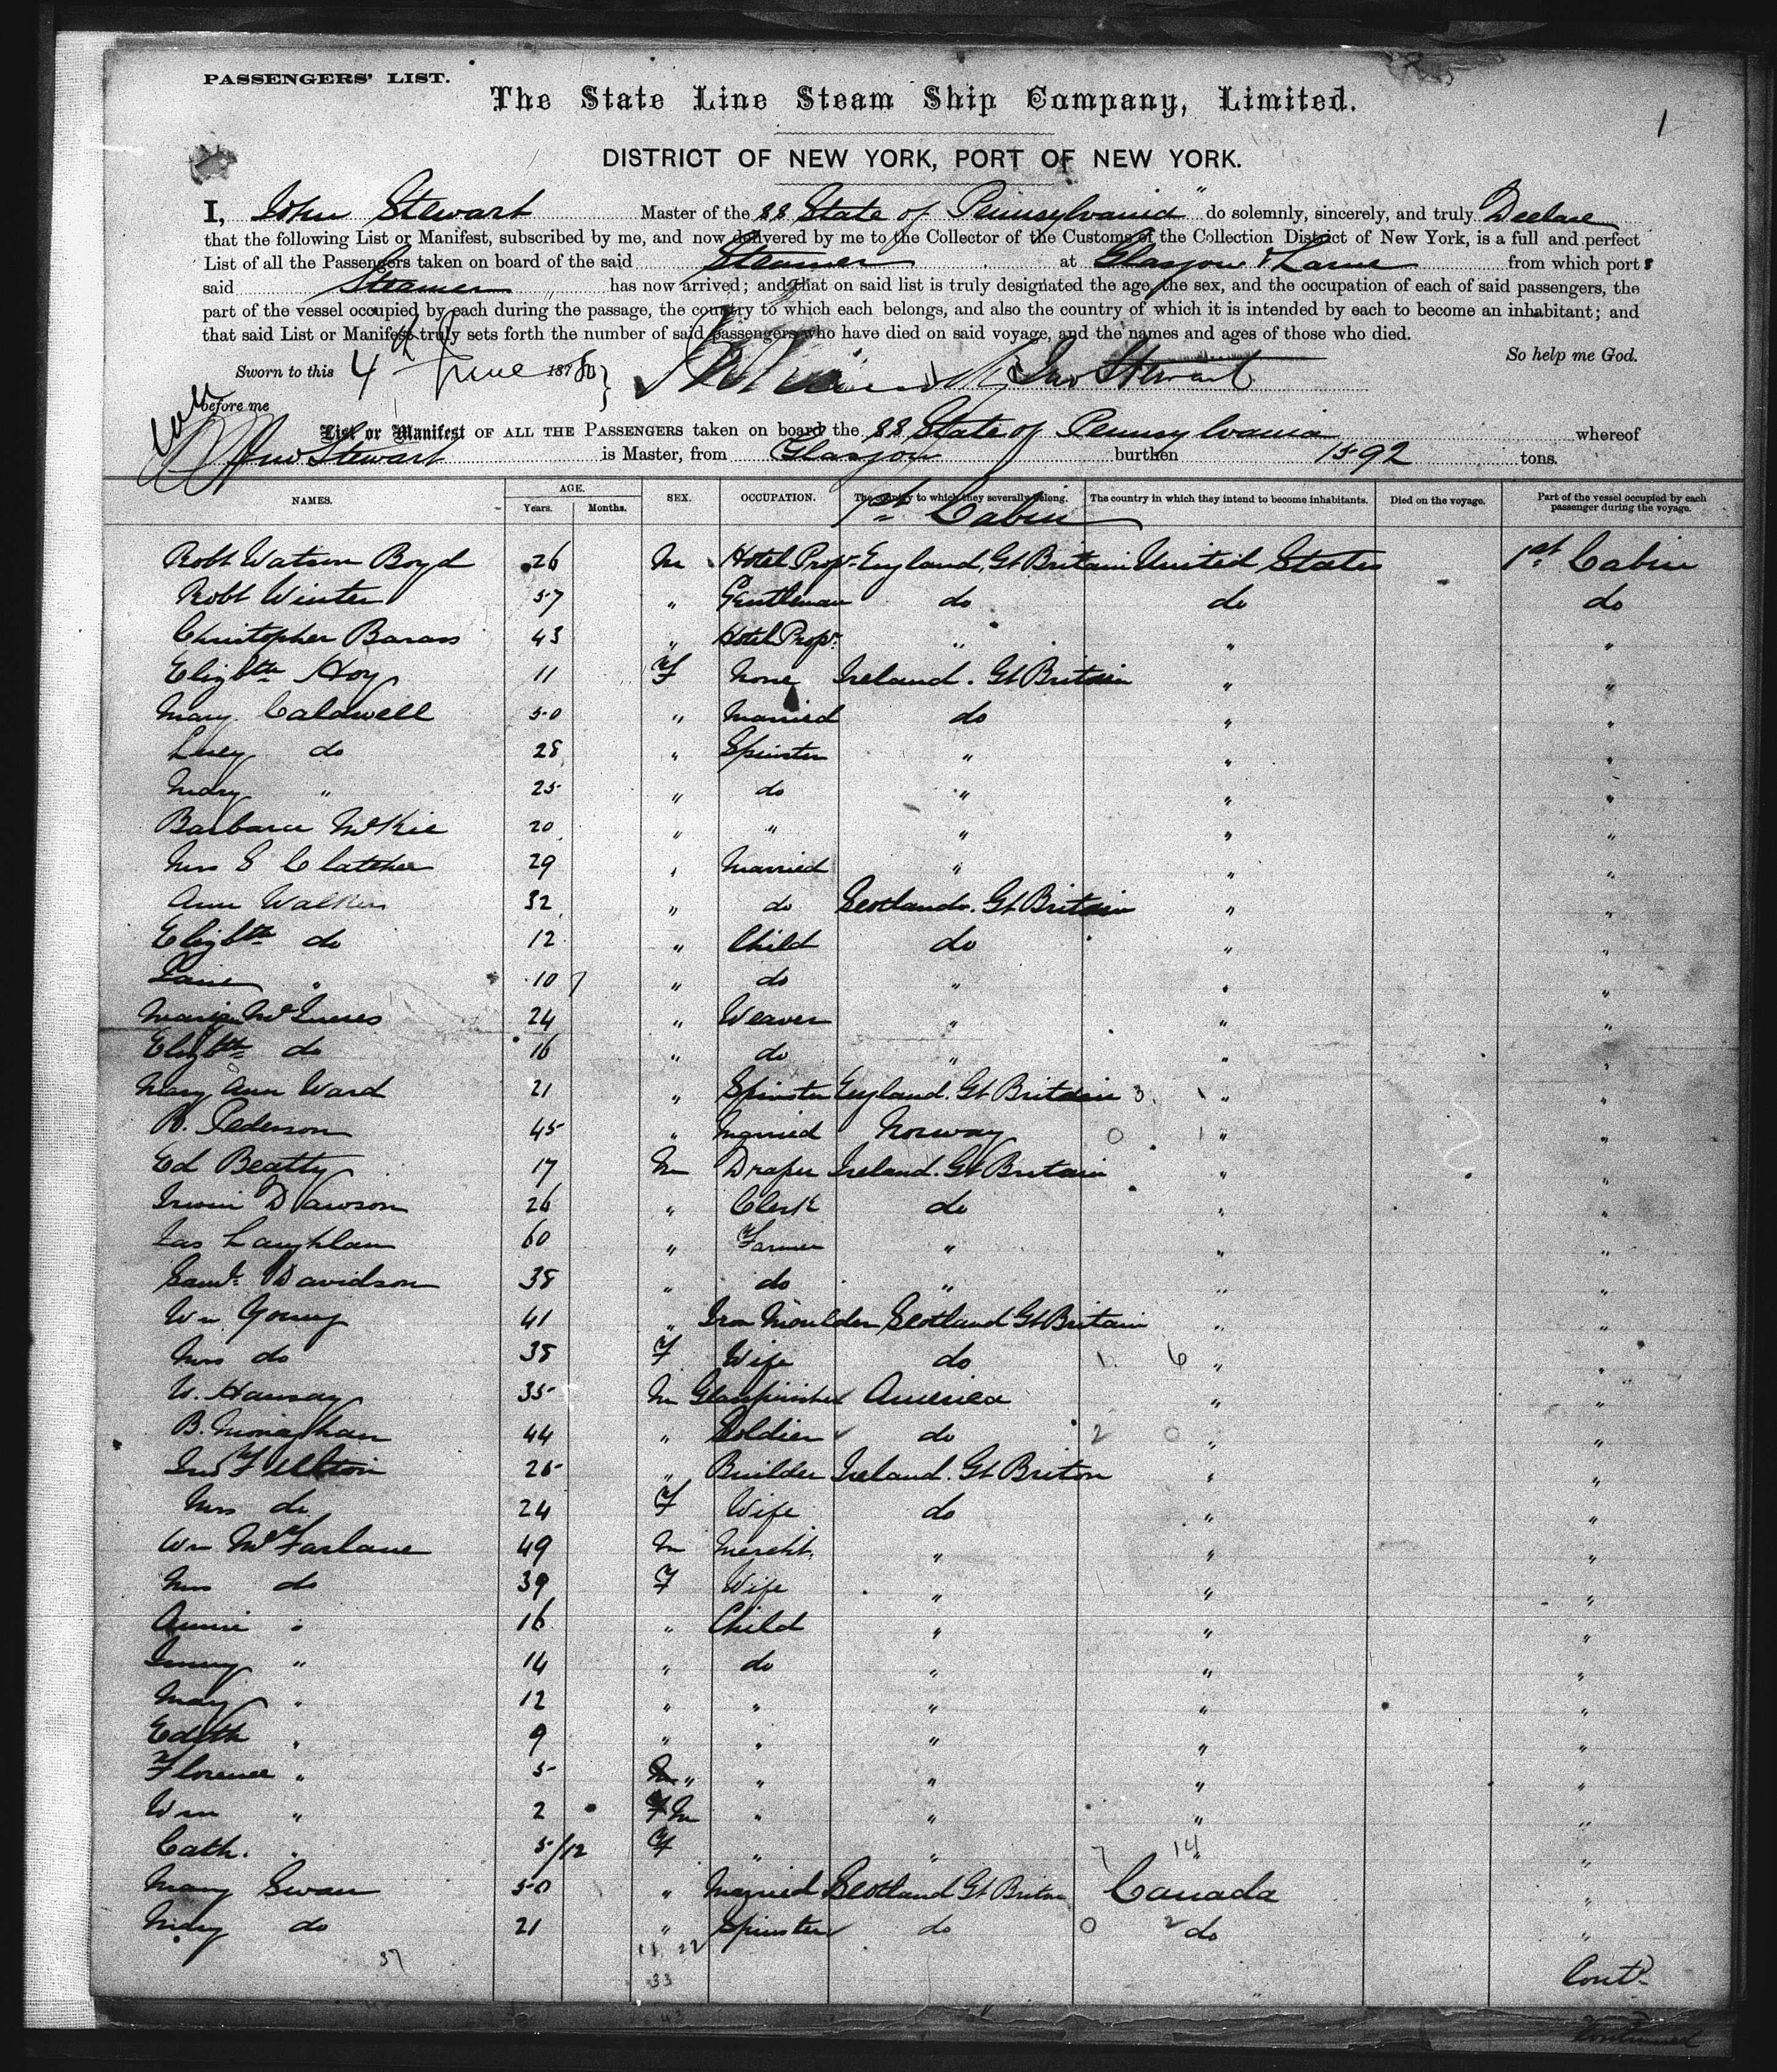 PASSENGERS' LIST.
The State Line Steam Ship Company, Limited.
1
DISTRICT OF NEW YORK, PORT OF NEW YORK.
I, John Stewart Master of the SS State of Pennsylvania do solemnly, sincerely, and truly Declare
that the following List or Manifest, subscribed by me, and now delivered by me to the Collector of the Customs of the Collection District of New York, is a full and perfect
List of all the Passengers taken on board of the said Steamer at Glasgow & Larne from which ports
said Steamer has now arrived; and that on said list is truly designated the age, the sex, and the occupation of each of said passengers, the
part of the vessel occupied by each during the passage, the country to which each belongs, and also the country of which it is intended by each to become an inhabitant; and
that said List or Manifest truly sets forth the number of said passengers who have died on said voyage, and the names and ages of those who died.
So help me God.
Sworn to this 4th June 187 Jno Stewart
before me
List or Manifest OF ALL THE PASSENGERS taken on board the SS State of Pennsylvania whereof
Jno Stewart is Master, from Glasgow burthen 1592 tons.
NAMES. AGE. Years. Months. SEX. OCCUPATION. The country to which they severally belong. The country in which they intend to become inhabitants. Died on the voyage. Part of the vessel occupied by each passenger during the voyage.
1st Cabin
Robt Watson Boyd 26 M Hotel Propr England, Gt Britain United States 1st Cabin
Robt Winter 57 " Gentleman do do do
Christopher Barass 43 " Hotel Propr " " "
Elizbth Hoy 11 F None Ireland. Gt Britain " "
Mary Caldwell 50 " Married do " "
Lucy do 28 " Spinster " " "
Mary " 25 " do " " "
Barbara McKie 20 " " " " "
Mrs S Clatcher 29 " Married " " "
Ann Walker 32 " do Scotland. Gt Britain " "
Elizbth do 12 " Child do " "
Jane " 10 " do " " "
Maria McInnes 24 " Weaver " " "
Elizbth do 16 " do " " "
Mary Ann Ward 21 " Spinster England. Gt Britain 3 1 "
R. Pederson 45 " Married Norway 0 1 "
Ed Beatty 17 M Draper Ireland. Gt Britain " "
Irwin Dawson 26 " Clerk do " "
Jas Laughlan 60 " Farmer " " "
Saml Davidson 38 " do " " "
Wm Young 41 " Iron Moulder Scotland Gt Britain " "
Mrs do 38 F Wife do 1 6 " "
W. Hansay 35 M Glassfinisher America " "
B. Monaghan 44 " Soldier do 2 0 " "
Jno Fullton 25 " Builder Ireland. Gt Briton " "
Mrs do 24 F Wife do " "
Wm McFarlane 49 M Mercht. " " "
Mrs do 39 F Wife " " "
Annie " 16 " Child " " "
Jenny " 14 " do " " "
May " 12 " " " " "
Edith " 9 " " " " "
Florence " 5 M " " " " "
Wm " 2 F M " " " "
Cath. " 5/12 F " " 7 14 " "
Mary Swan 50 " Married Scotland Gt Briton Canada "
Mary do 21 " Spinster do 0 2 do "
37 11 22
33
Contd
Continued